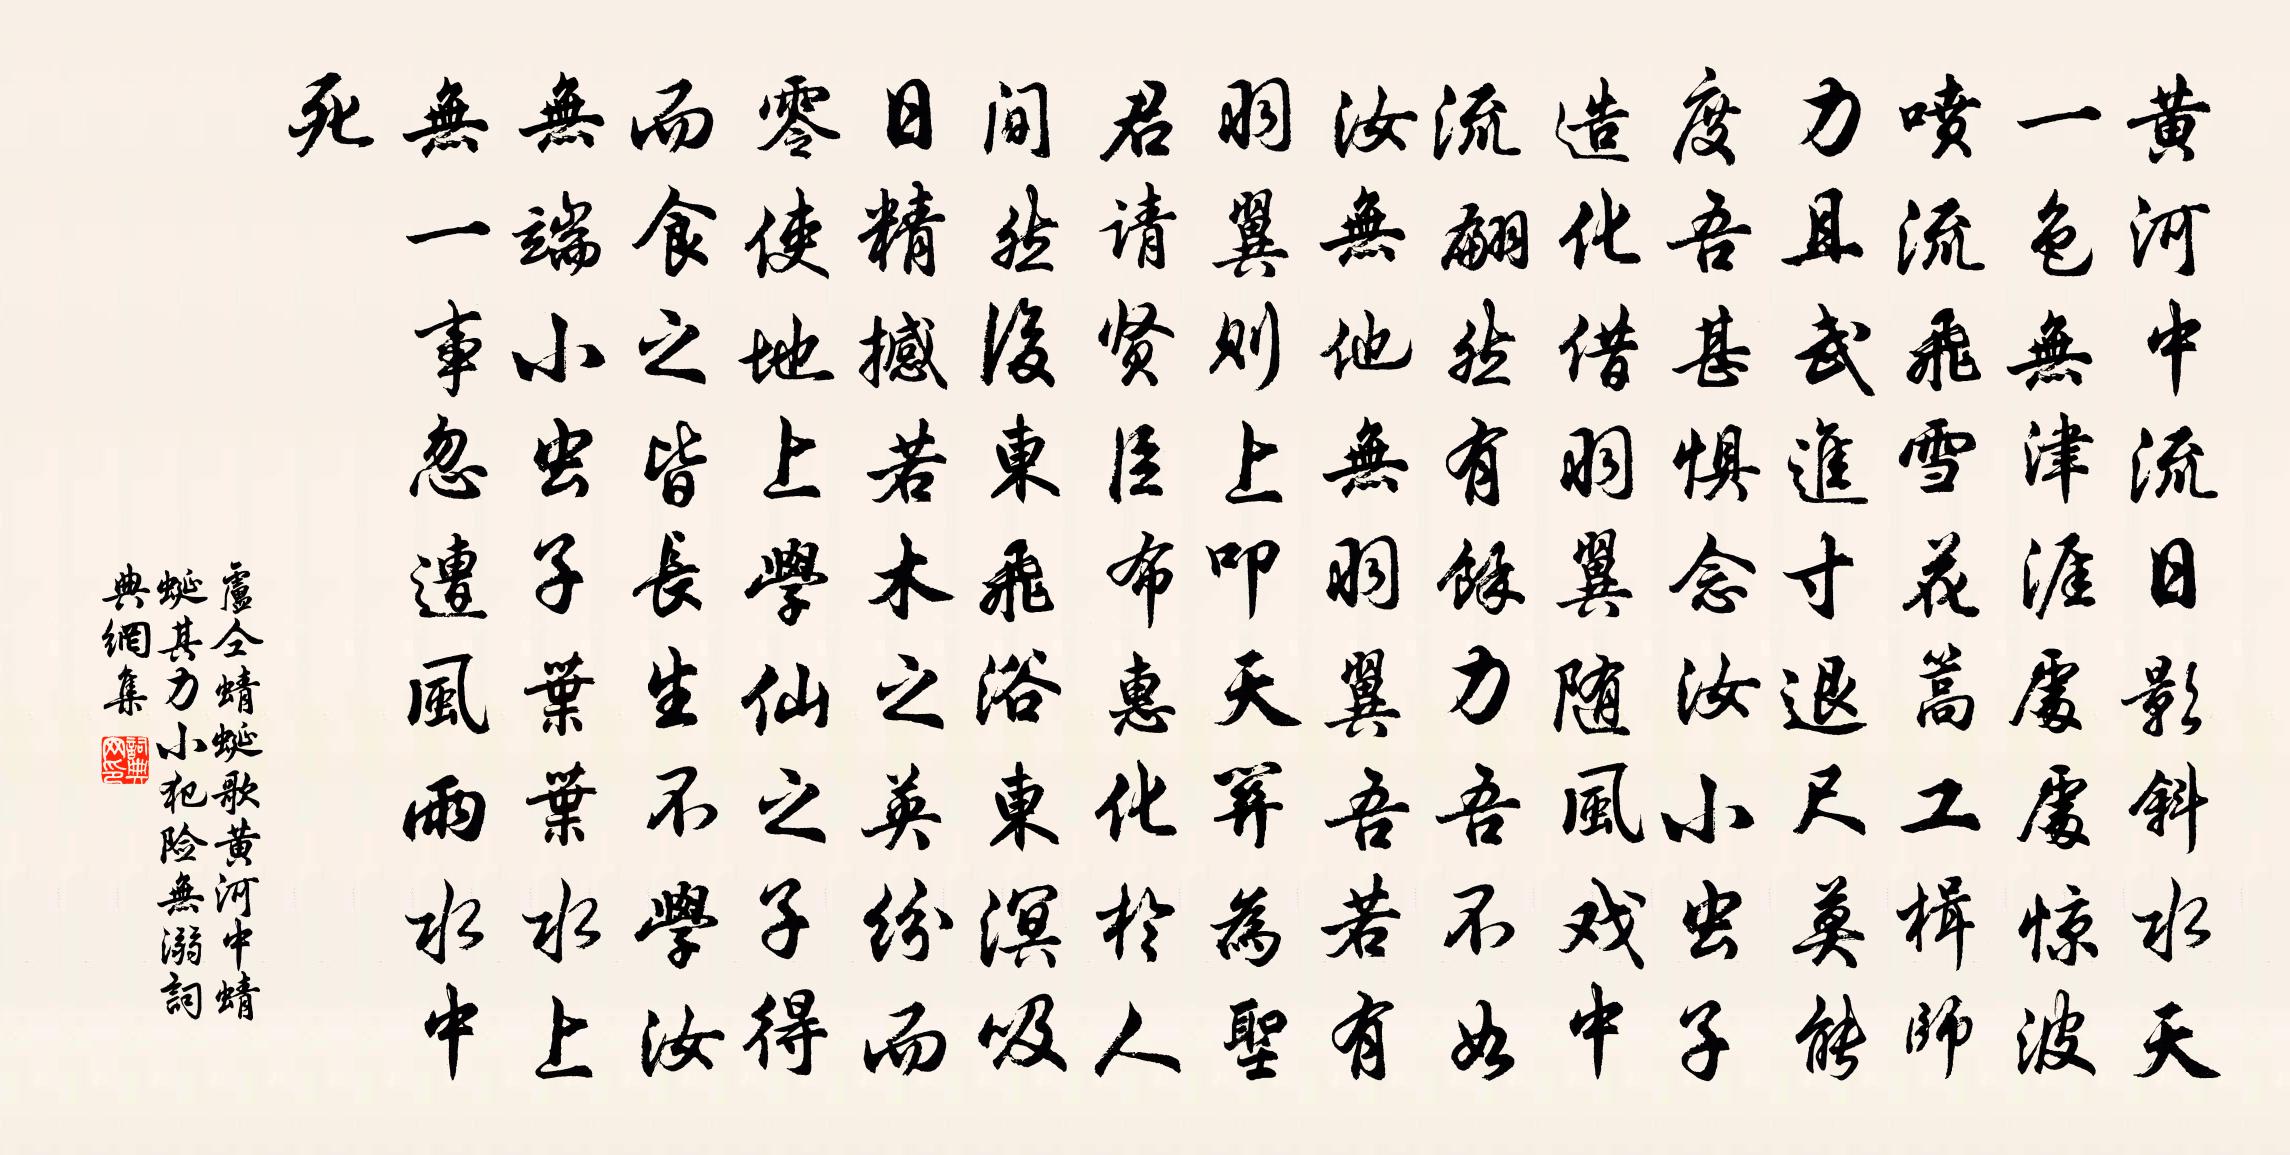 黄河中流日影斜水天
一色無津涯處處惊波
喷流飛雪花篙工楫師
力且武進寸退尺莫能
度吾甚惧念汝小虫子
造化借羽翼随風戏中
流翩然有餘力吾不如
汝無他無羽翼吾若有
羽翼则上叩天關為聖
君请贤臣布惠化於人
间然後東飛浴東溟吸
日精撼若木之英纷而
零使地上學仙之子得
而食之皆長生不學汝
無端小虫子葉葉水上
無一事忽遭風雨水中
死
盧仝蜻蜓歌黄河中蜻
蜓其力小犯险無溺詞
典網集
詞典網印